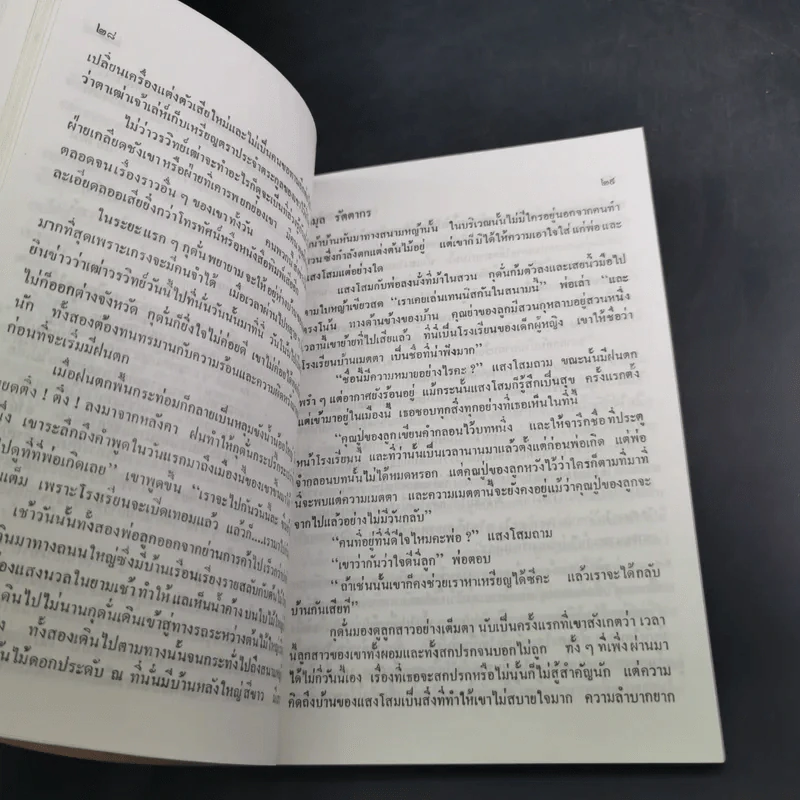 ๒๘
เปลี่ยนเครื่องแต่งตัวเสียใหม่และไม่เป็นคนขอทาน
ว่าตาเฒ่าเจ้าเล่ห์เก็บเหรียญตราประจำตระกูลของ
ไม่ว่าวรวิทย์เฒ่าจะทำอะไรก็ดูจะเป็นที่
ฝ่ายเกลียดชังเขา หรือฝ่ายที่เคารพยกย่องเขา
ตลอดจนเรื่องราวอื่น ๆ ของเขาทั้งวัน
ละเอียดลออเสียยิ่งกว่าโทรทัศน์หรือหนังสือพิมพ์เสียอีก
ในระยะแรก ๆ กุดั่นพยายามจะให้อยู่ห่าง
มากที่สุดเพราะเกรงจะมีคนจำได้ เมื่อเวลาผ่านไป
ยินข่าวว่าเฒ่าวรวิทย์วันนี้ไปที่นั่นวันนั้นมาที่นี่ วันโน้น
ไม่ก็ออกต่างจังหวัด กุดั่นก็ยิ่งใจไม่ค่อยดี เขาไม่ค่อย
นัก ทั้งสองต้องทนทรมานกับความร้อนและความ
ก่อนที่จะเริ่มมีฝนตก
เมื่อฝนตกพื้นกระท่อมก็กลายเป็นหลุมขังน้ำ
ติ๋ง ! ติ๋ง ! ลงมาจากหลังคา ฝนทำให้กุดั่นกระปรี้กระเปร่า
เขาระลึกถึงคำพูดในวันแรกมาถึงเมืองนี้ของเขา
ไปดูที่ที่พ่อเกิดเลย” เขาพูดขึ้น “เราจะไปกันวันนี้ละ
เพราะโรงเรียนจะเปิดเทอมแล้ว แล้วก็....เรา
เช้าวันนั้นทั้งสองพ่อลูกออกจากย่านการค้าไป
มาทางถนนใหญ่ซึ่งมีบ้านเรือนเรียงรายสลับกับต้นไม้
แสงนวลในยามเช้า ทำให้ แลเห็นน้ำค้างบนใบไม้
เดินไปไม่นานกุดั่นเดินเข้าสู่ทางรถระหว่างต้นไม้ใหญ่
ทั้งสองเดินไปตามทางนั้นจนกระทั่งไปถึง
ไม้ดอกประดับ ณ ที่นั่นมีบ้านหลังใหญ่ สีขาว
๒๙
รัตตากร
หน้าบ้านหันมาทางสนามหญ้านั้น ในบริเวณนั้นไม่มีใครอยู่นอกจากคนทำ
สวน ซึ่งกำลังตกแต่งต้นไม้อยู่ แต่เขาก็มิได้ให้ความเอาใจใส่ แก่พ่อและ
แสงโสมแต่อย่างใด
แสงโสมกับพ่อลงนั่งที่ม้าในสวน กุดั่นก้มตัวลงและเสยนิ้วมือไป
ตามใบหญ้าเขียวสด “เราเคยเล่นเทนนิสกันในสนามนี้” พ่อเล่า “และ
ตรงโน้น ทางด้านข้างของบ้าน คุณย่าของลูกมีสวนกุหลาบอยู่สวนหนึ่ง
เวลานี้เขาย้ายที่ไปเสียแล้ว ที่นี่เป็นโรงเรียนของเด็กผู้หญิง เขาให้ชื่อว่า
โรงเรียนบ้านเมตตา เป็นชื่อที่น่าฟังมาก”
“ชื่อนี้มีความหมายอย่างไรคะ ?” แสงโสมถาม ขณะนั้นมีฝนตก
พรำ ๆ แต่อากาศยังร้อนอยู่ แม้กระนั้นแสงโสมก็รู้สึกเป็นสุข ครั้งแรกตั้ง
แต่เข้ามาอยู่ในเมืองนี้ เธอชอบทุกสิ่งทุกอย่างที่เธอเห็นในที่นี้
“คุณปู่ของลูกเขียนคำกลอนไว้บทหนึ่ง และให้จารึกชื่อ ที่ประตู
หน้าโรงเรียนนี้ และที่ว่านั้นเป็นเวลานานมาแล้วตั้งแต่ก่อนพ่อเกิด แต่พ่อ
จำกลอนบทนั้นไม่ได้หมดหรอก แต่คุณปู่ของลูกหวังไว้ว่าใครก็ตามที่มาที่
นี่จะพบแต่ความเมตตา และความเมตตานี้จะยังคงอยู่แม้ว่าคุณปู่ของลูกจะ
จากไปแล้วอย่างไม่มีวันกลับ”
“คนที่อยู่ที่นี่ดีใจไหมคะพ่อ ?” แสงโสมถาม
“เขาว่ากันว่าใจดีนี่ลูก” พ่อตอบ
“ ถ้าเช่นนั้นเขาก็คงช่วยเราหาเหรียญได้ซีคะ แล้วเราจะได้กลับ
บ้านกันเสียที”
กุดั่นมองดูลูกสาวอย่างเต็มตา นับเป็นครั้งแรกที่เขาสังเกตว่า เวลา
นี้ลูกสาวของเขาทั้งผอมและทั้งสกปรกจนบอกไม่ถูก ทั้ง ๆ ที่เพิ่งผ่านมา
ได้ไม่กี่วันนี่เอง เรื่องที่เธอจะสกปรกหรือไม่นั้นก็ไม่สู้สำคัญนัก แต่ความ
คิดถึงบ้านของแสงโสมเป็นสิ่งที่ทำให้เขาไม่สบายใจมาก ความลำบากยาก